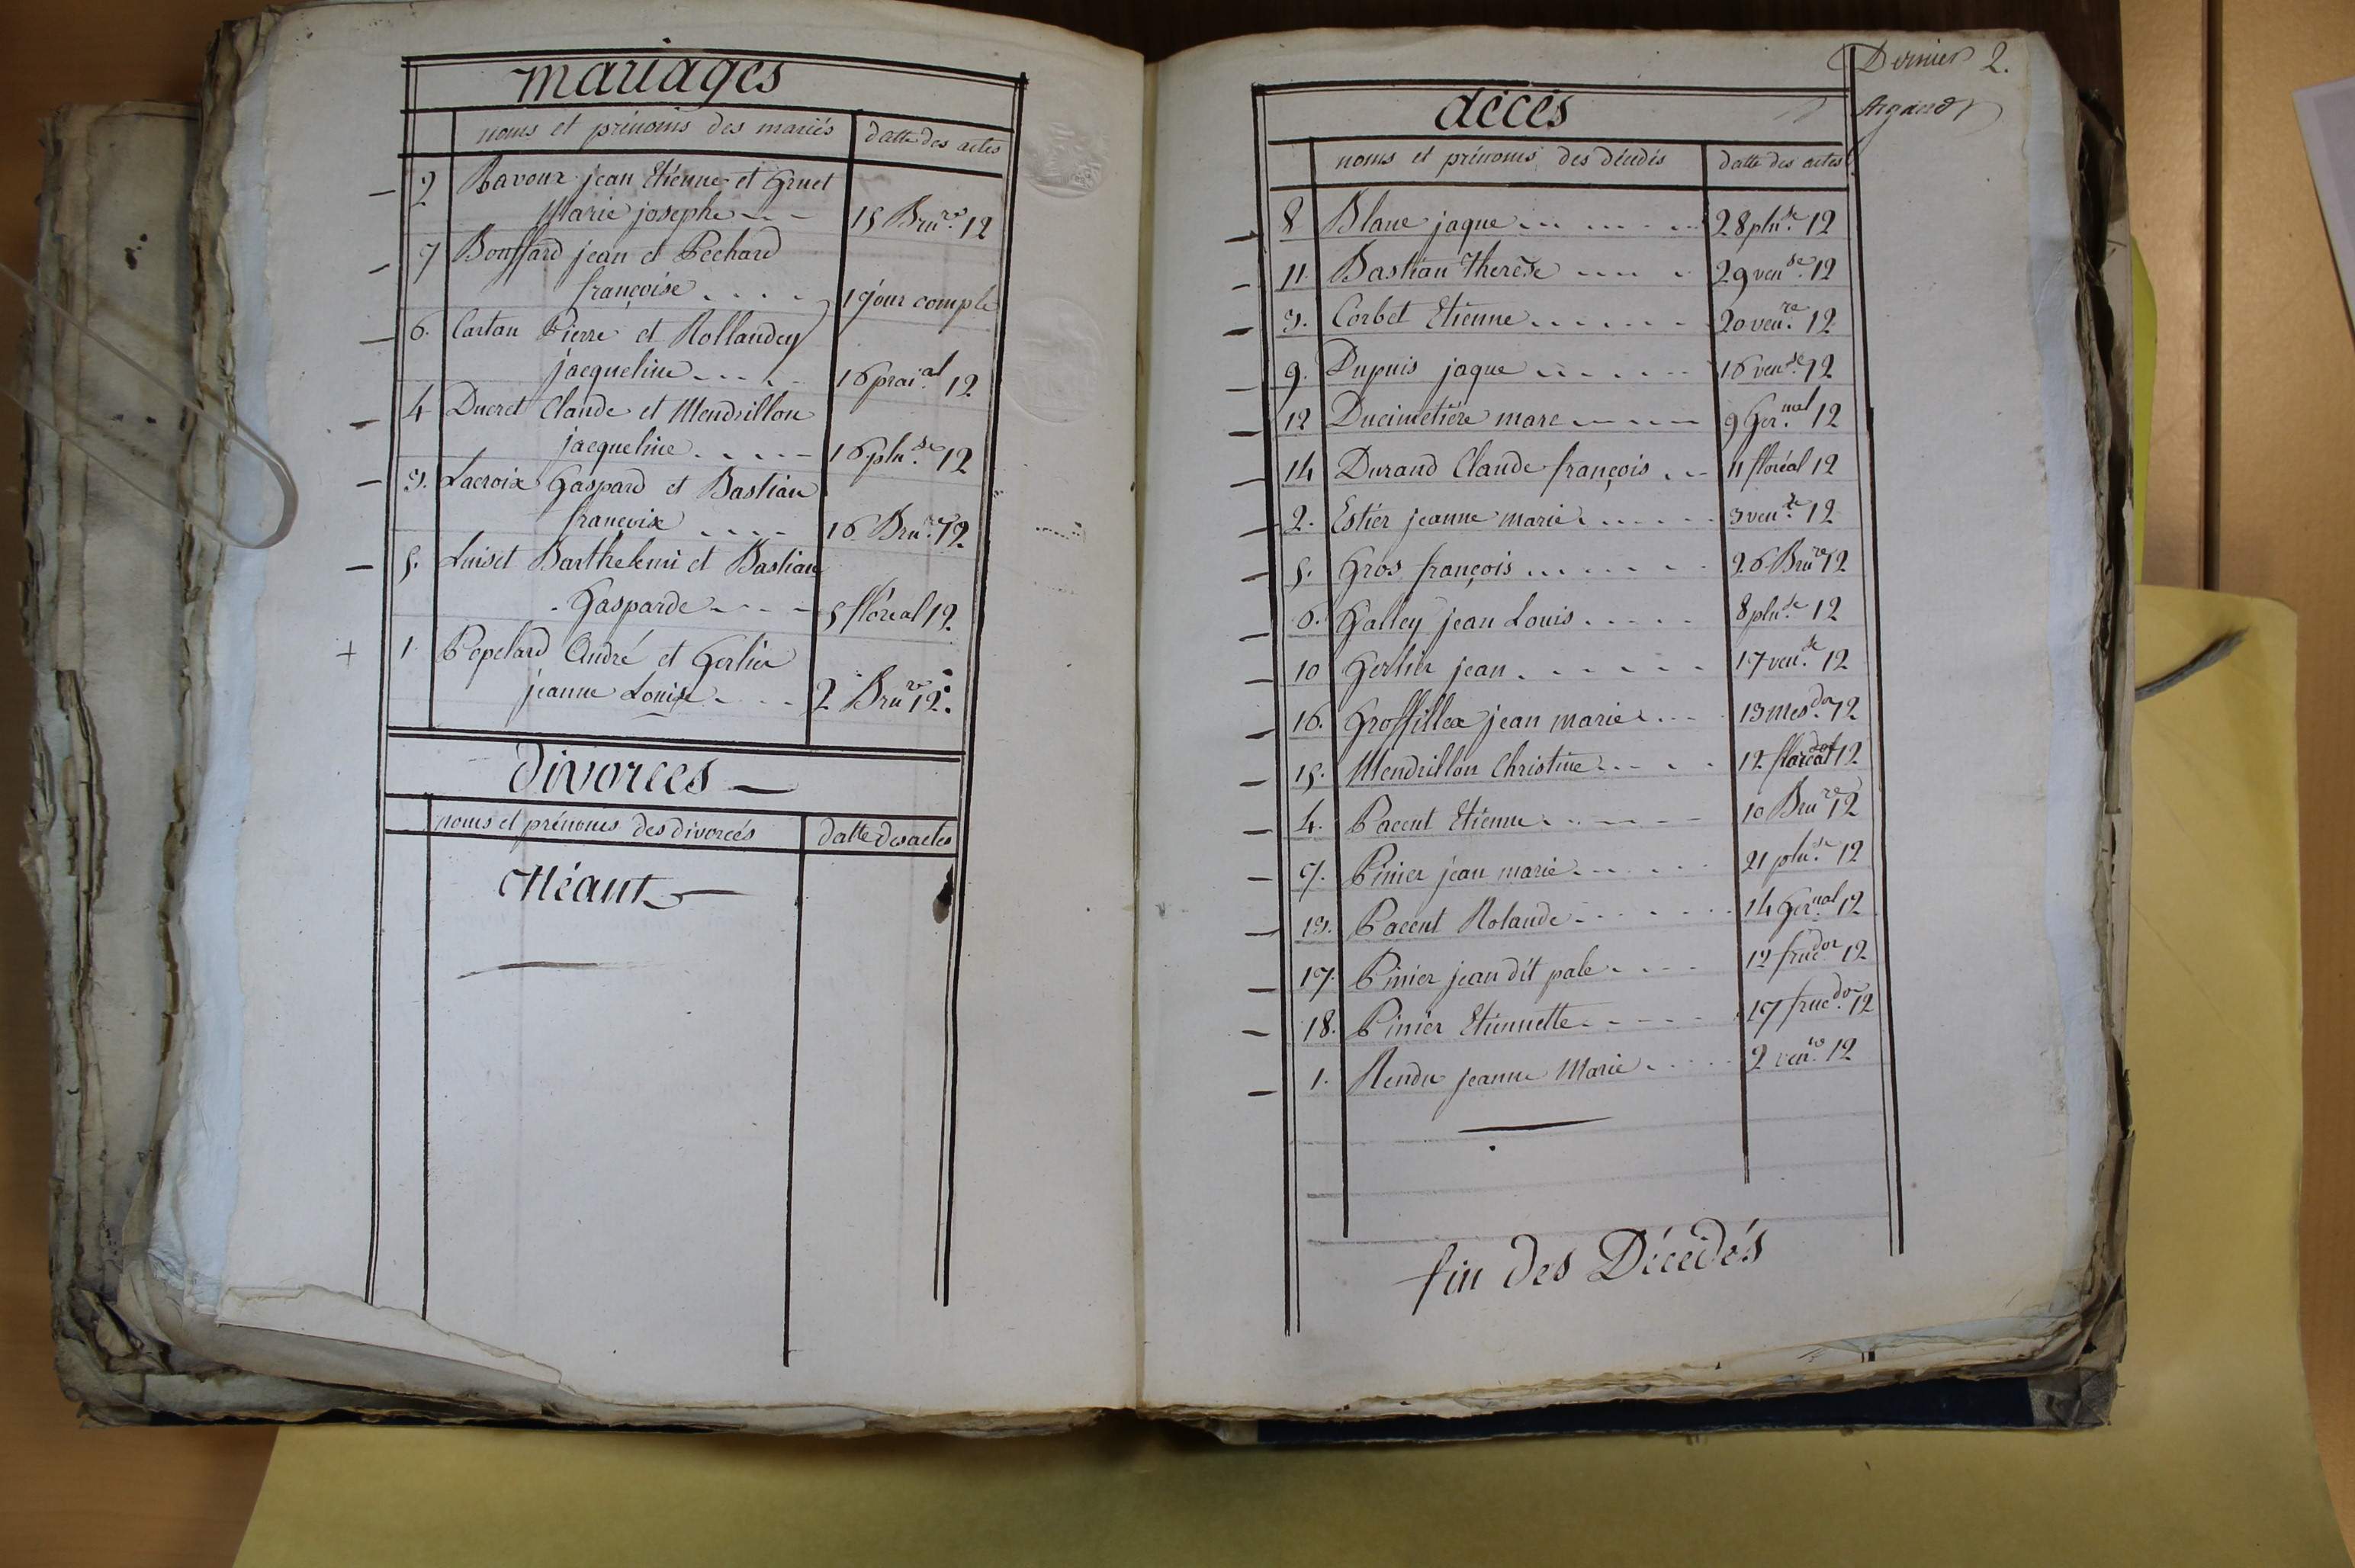 mariages
noms et prénoms des mariés datte des actes
2 Bavoux jean Etienne et Gruet
Marie josephe 15 Bru.re 12
7 Bouffard jean et Pechard
françoise 1 jour comple
6. Cartan Pierre et Rollandey
jacqueline 16 prai.al 12
4 Ducret Claude et Mendrillon
jacqueline 16 plu.se 12
3. Lacroix Gaspard et Bastian
françoise 16 Bru.re 12
5. Luiset Barthelemi et Bastian
Gasparde 5 floréal 12
1. Popelard André et Gerlier
jeanne Louise 2 Bru.re 12.
divorces
noms et prénoms des divorcés datte des actes
Néant
Dernier 2.
Argand
décés
noms et prénoms des décédés datte des actes
8 Blanc jaque 28 plu.se 12
11. Bastian Therèse 29 ven.se 12
3. Corbet Etienne 20 ven.re 12
9. Dupuis jaque 16 ven.se 12
12 Ducimetière marc 9 Ger.nal 12
14 Durand Claude françois 11 floréal 12
2. Estier jeanne marie 3 ven.re 12
5. Gros françois 26 Bru.re 12
6. Galley jean Louis 8 plu.se 12
10 Gerlier jean 17 ven.se 12
16. Grosfillex jean marie 13 mes.dor 12
15. Mendrillon Christine 12 floréal 12
4. Pacent Etienne 10 Bru.re 12
7. Pinier jean marie 21 plu.se 12
13. Pacent Rolande 14 Ger.nal 12
17. Pinier jean dit pale 12 fruc.dor 12
18. Pinier Etiennette 17 fruc.dor 12
1. Rendu jeanne Marie 2 ven.re 12
fin des Décédés